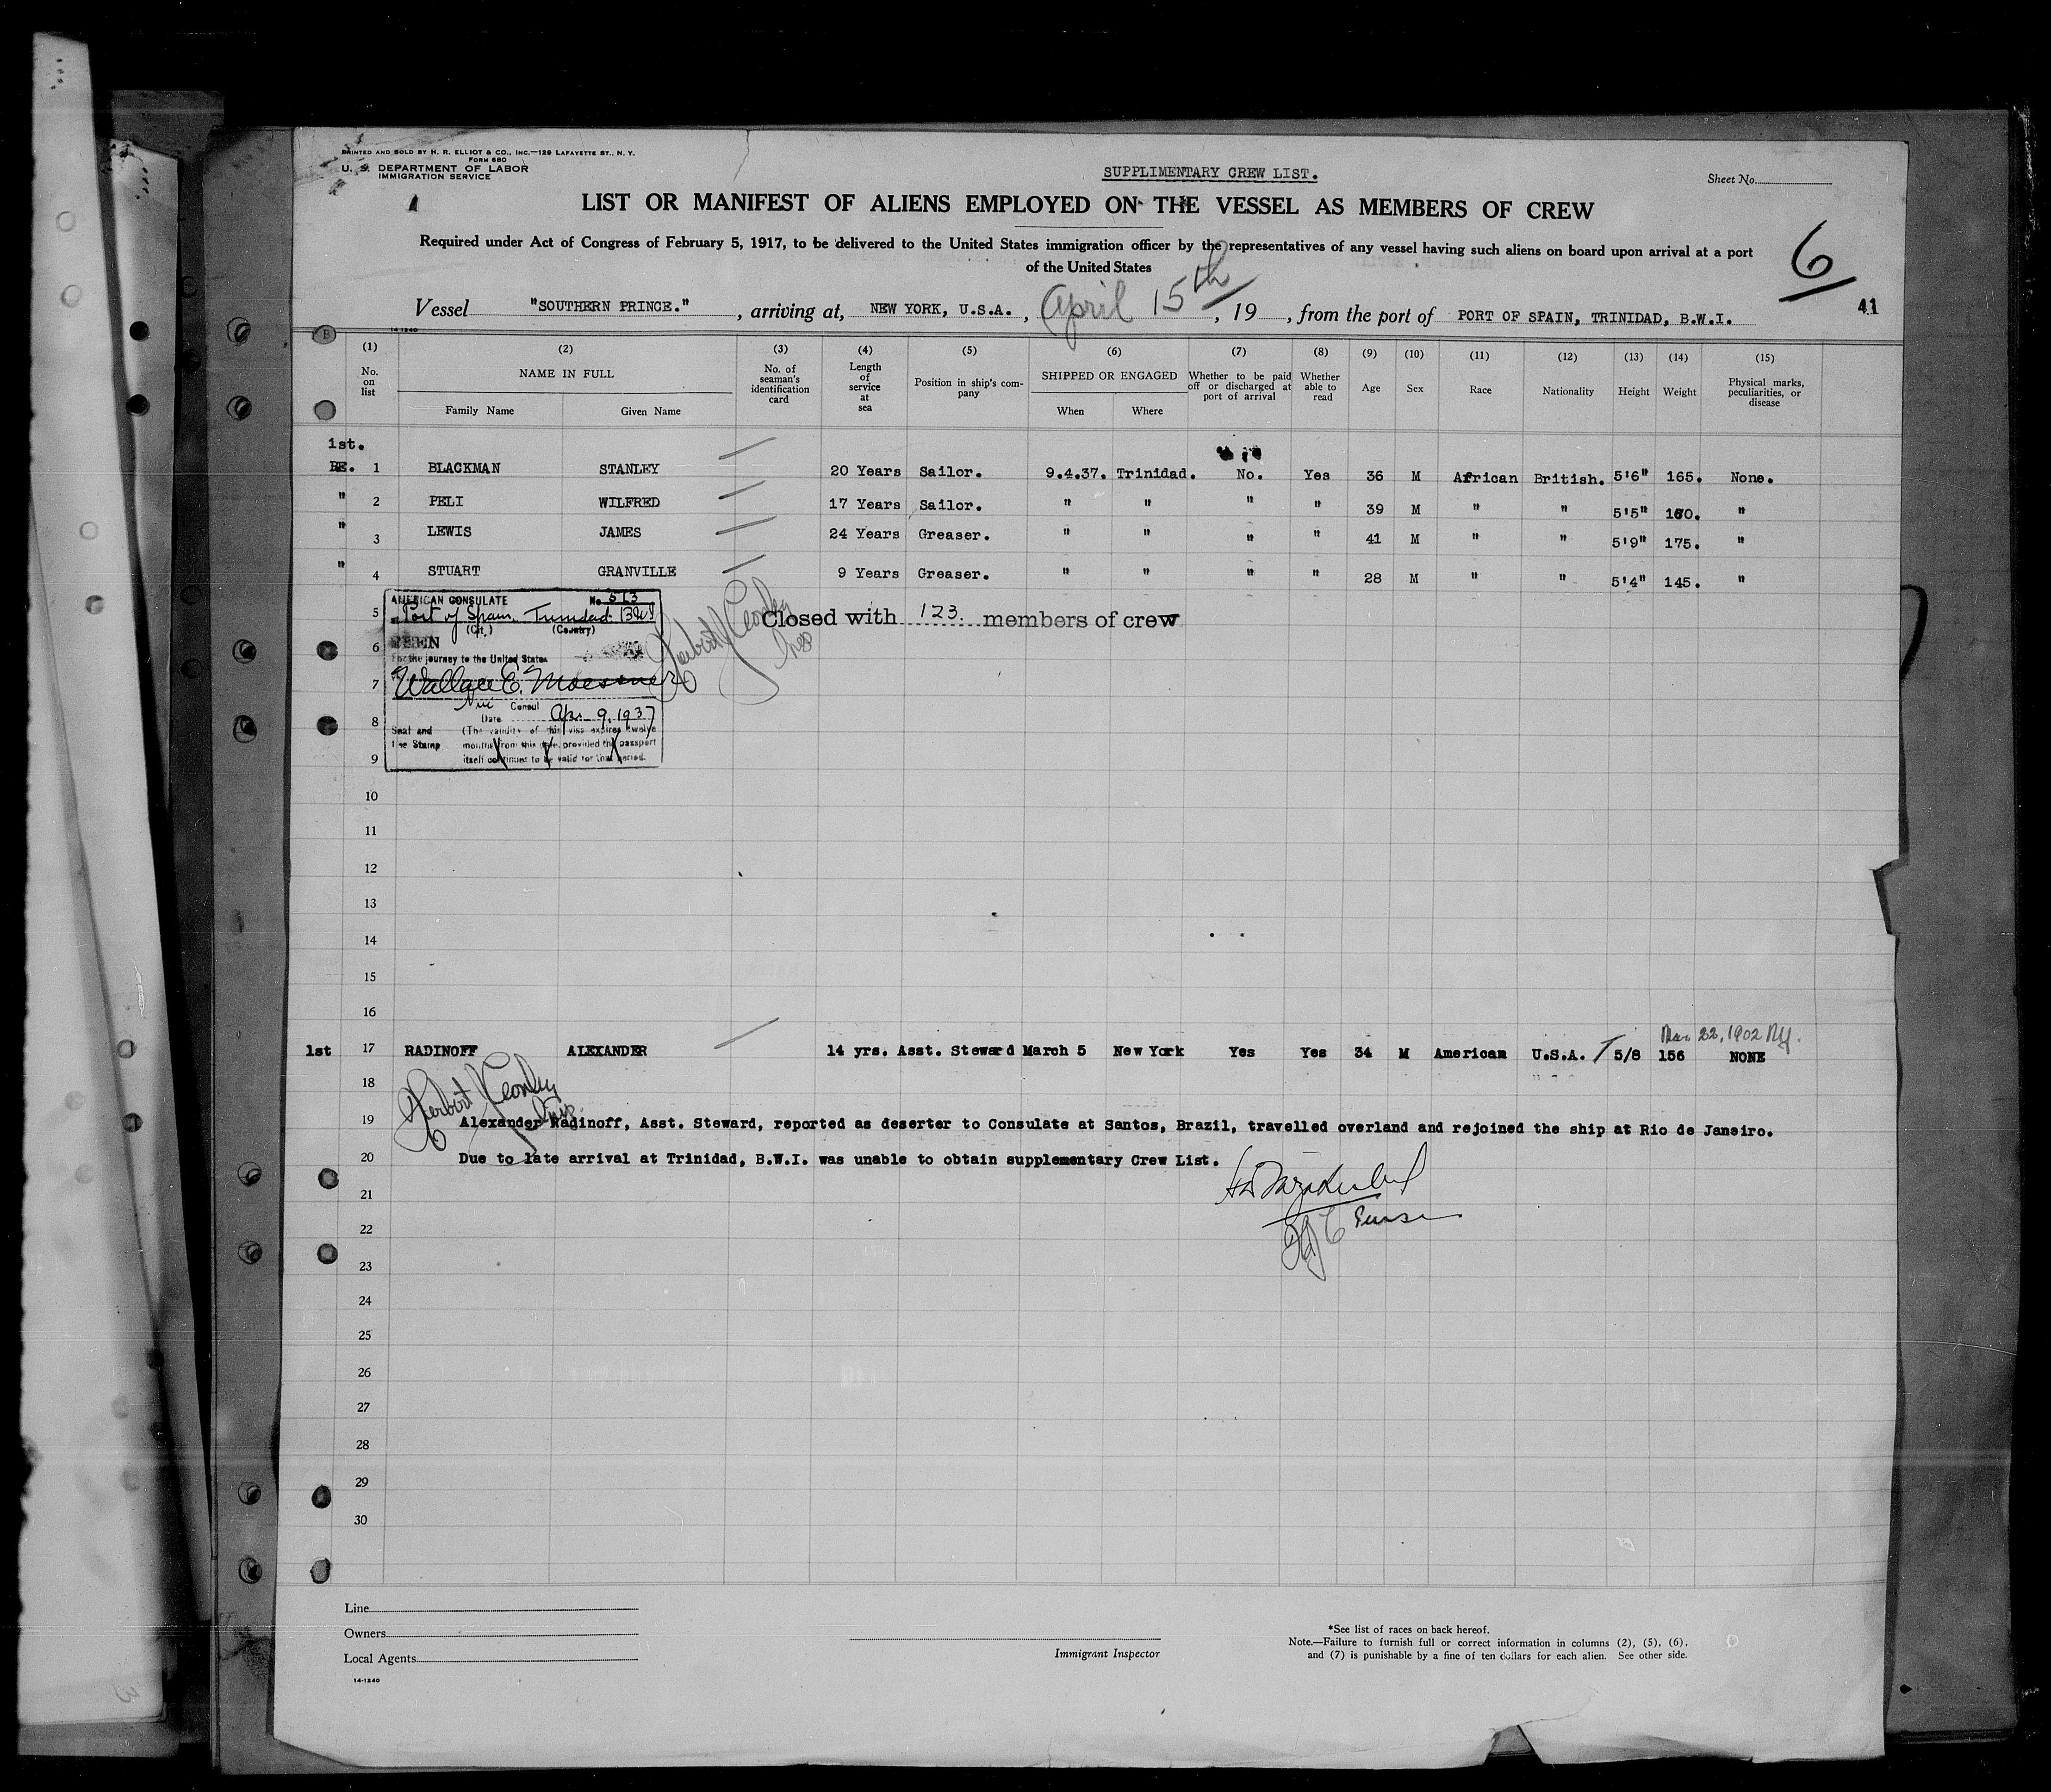 PRINTED AND SOLD BY H. R. ELLIOT & CO., INC.—129 LAFAYETTE ST., N. Y.
FORM 680
U. S. DEPARTMENT OF LABOR
IMMIGRATION SERVICE
SUPPLIMENTARY CREW LIST.
Sheet No.
LIST OR MANIFEST OF ALIENS EMPLOYED ON THE VESSEL AS MEMBERS OF CREW
Required under Act of Congress of February 5, 1917, to be delivered to the United States immigration officer by the representatives of any vessel having such aliens on board upon arrival at a port
of the United States
6
Vessel "SOUTHERN PRINCE." , arriving at, NEW YORK, U.S.A. , April 15th , 19 , from the port of PORT OF SPAIN, TRINIDAD, B.W.I.
41
14-1240
(1) (2) (3) (4) (5) (6) (7) (8) (9) (10) (11) (12) (13) (14) (15)
No. on list NAME IN FULL No. of seaman's identification card Length of service at sea Position in ship's company SHIPPED OR ENGAGED Whether to be paid off or discharged at port of arrival Whether able to read Age Sex Race Nationality Height Weight Physical marks, peculiarities, or disease
Family Name Given Name When Where
1st.
RE. 1 BLACKMAN STANLEY 20 Years Sailor. 9.4.37. Trinidad. No. Yes 36 M African British. 5'6" 165. None.
" 2 PELI WILFRED 17 Years Sailor. " " " " 39 M " " 5'5" "
" 3 LEWIS JAMES 24 Years Greaser. " " " " 41 M " " 5'9" 175. "
" 4 STUART GRANVILLE 9 Years Greaser. " " " " 28 M " " 5'4" 145. "
AMERICAN CONSULATE No. 313
Port of Spain, Trinidad BWI
(City) (Country)
SEEN
For the journey to the United States
Wallace E. Moessner
Vice Consul
Date Apr. 9, 1937
Seal and (The validity of this visa expires twelve
Fee Stamp months from this date, provided the passport
itself continues to be valid for that period.
Closed with 123. members of crew
5
6
7
8
9
10
11
12
13
14
15
16
22, 1902 NY.
1st 17 RADINOFF ALEXANDER 14 yrs. Asst. Steward March 5 New York Yes Yes 34 M American U.S.A. 5/8 156 NONE
18
Herbert
19 Alexander Radinoff, Asst. Steward, reported as deserter to Consulate at Santos, Brazil, travelled overland and rejoined the ship at Rio de Janeiro.
20 Due to late arrival at Trinidad, B.W.I. was unable to obtain supplementary Crew List.
21
22 Purser
23
24
25
26
27
28
29
30
Line
Owners
Local Agents
14-1240
Immigrant Inspector
*See list of races on back hereof.
Note.—Failure to furnish full or correct information in columns (2), (5), (6),
and (7) is punishable by a fine of ten dollars for each alien. See other side.